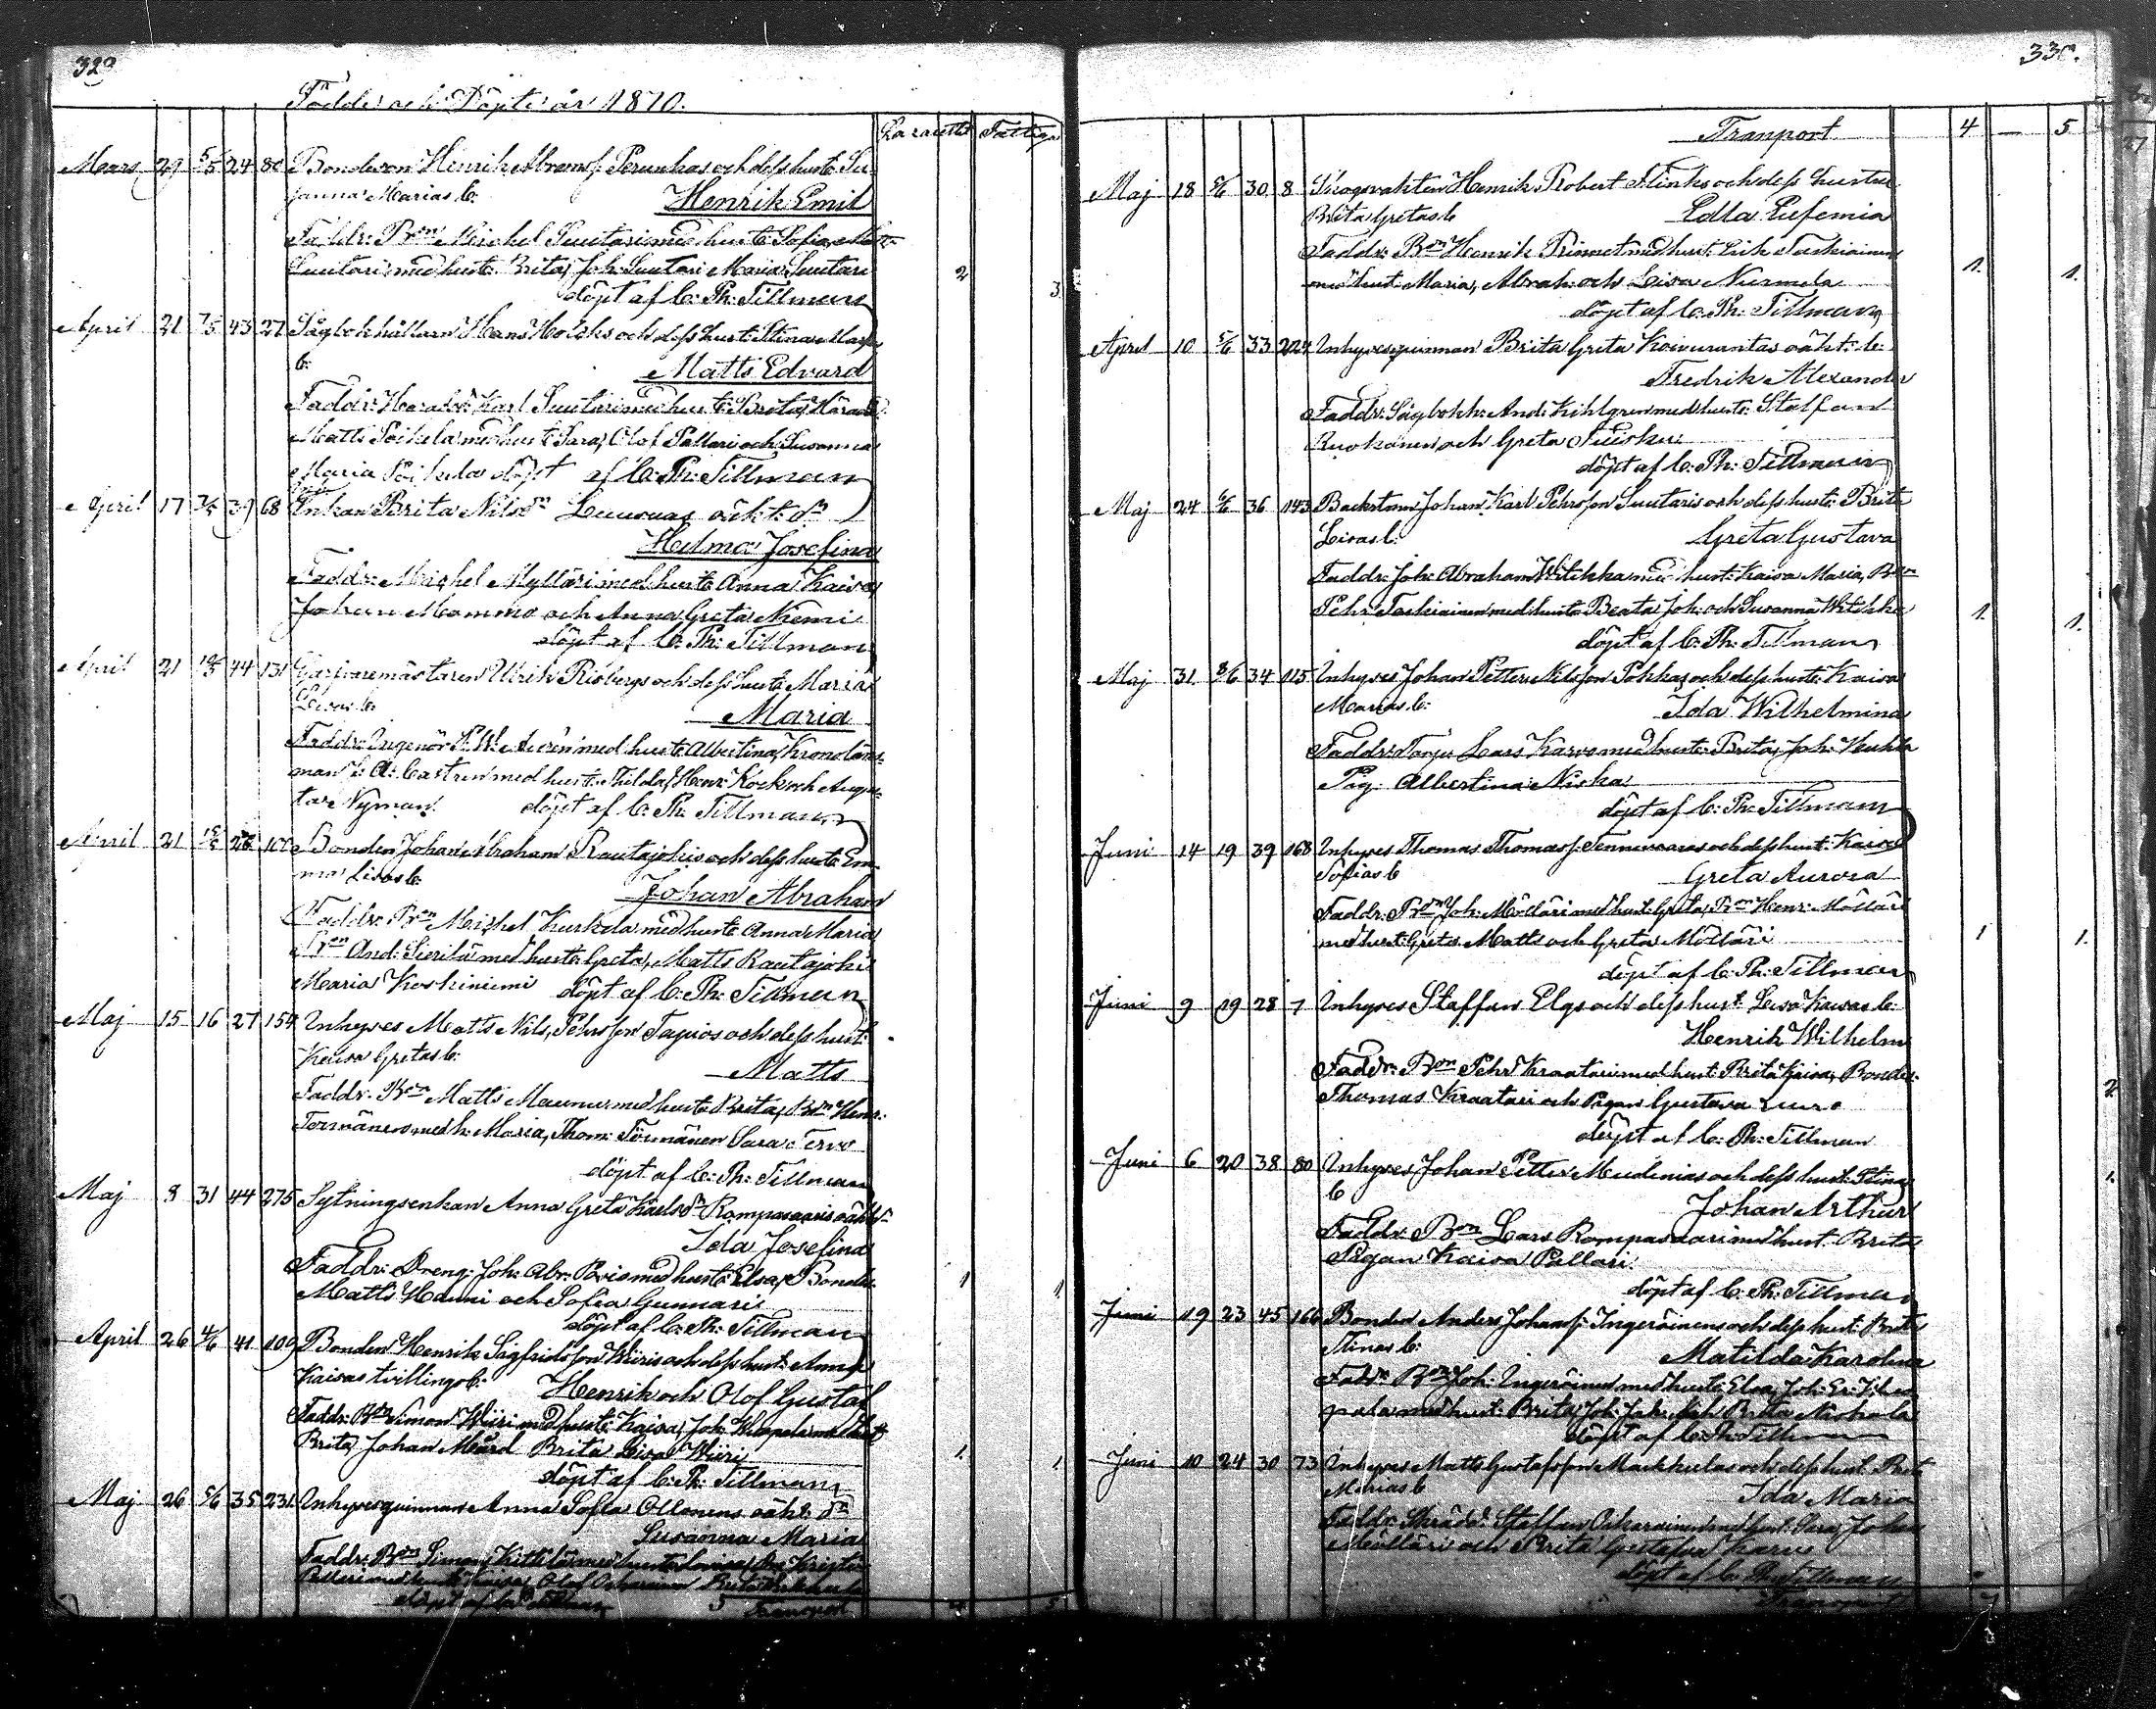 329
Födde och Döpte år 1870.
Lazarette Fattiga
Mars 29 5/5 24 80 Bondeson Henrik Abramsf. Perunkas och dess hust: Su-
sanna Marias b.
Henrik Emil
Faddr: Bon Michel Suutari med hust: Sofia, Matts
Suutari med hust: Brita, Joh: Suutari Maria Suutari
2 3
döpt af C. Ph. Tillman
April 21 7/5 43 27 Sågbokhållarn Hans Holcks och dess hust: Stina Maj
b.
Matts Edvard
Faddr: Karl Suutari med hust: Brita,
Matts Poikela med hust: Sara, Olof Pallari och Susanna
Maria Poikela döpt af C. Ph. Tillman
April 17 39 68 Enkan Brita Nilsdr oäkt: dr
Hilma Josefina
Faddr: Michel Mylläri med hust: Anna Kaisa
Johan Mommo och Anna Greta Niemi
döpt af C. Ph. Tillman
April 21 44 131 Garfvaremästaren Ulrik Risbergs och dess hust: Maria
Lisas b.
Maria
Faddr: Ingenör med hust: Albertina, Kronoläns-
man Castren med hust: Hilda, Henr: Kock och Augus-
ta Nyman. döpt af C. Ph. Tillman
April 21 100 Bonden Johan Abraham Rautajokis och dess hust: Em-
ma Lisas b.
Johan Abraham
Faddr: Bon Michel Kuskela med hust: Anna Maria
Bon And: Sierilä med hust: Greta, Matts Rautajoki
Maria Koskiniemi döpt af C. Ph. Tillman
Maj 15 16 27 154 Inhyses Matts Nils Pehrsson Tapios och dess hust:
Kaisa Gretas b.
Matts
Faddr: Bon Matts Maunu med hust: Brita, Bon Henr:
Törmänen med h: Maria, Thom: Törmänen Sara Tervo
döpt af C. Ph. Tillman
Maj 8 31 44 275 Sytningsenkan Anna Greta Karlsdr Rompasaaris oäkt dr
Ida Josefina
Faddr: Dreng: Joh: Abr: med hust: Elsa, Bonde
1 1
Matts Hanni och Sofia Gunnari
döpt af C. Ph. Tillman
April 26 4/6 41 109 Bonden Henrik Sagfridsson Wiiris och dess hust: Anna
Kaisas tvillingsb. Henrik och Olof Gustaf
Faddr: Bon Simon Wiiri med hust: Kaisa, Joh: med hust
Brita, Johan Mård Brita Lisa Wiiri
1. 1
döpt af C. Ph. Tillman
Maj 26 5/6 35 231 Inhysesquinnan Anna Sofia Ollonens oäkt: dr
Susanna Maria
Faddr: Bon Simon Kittilä med hust: Lovisa,
Pallari med Olof Brita
döpt af C. Ph. Tillman Transport 4 5
330.
Tranport 4 — 5
Maj 18 5/6 30 8 Skogsvakten Henrik Robert Flinks och dess hustru
Brita Gretas b.
Edla Eufemia
Faddr: Bon Henrik Prinnet med hust: Erik Taskiainen
med hust: Maria, Abrah: och Lisa Nurmela
1. 1.
döpt af C. Ph. Tillman
April 10 5/6 33 224 Inhysesqvinnan Brita Greta Koivurantas oäkt: b.
Fredrik Alexander
Faddr: Sågbokh: And: Kihlgren med hust: Staffan
Ruokanen och Greta Suisku
döpt af C. Ph. Tillman
Maj 24 6/6 36 143 Backstum Johan Karl Pehrsson Suutaris och dess hust: Brita
Lisas b.
Greta Gustava
Faddr: Joh: Abraham Witikka med hust: Kaisa Maria, Bon
Pehr Taskiainen med hust: Beata Joh: och Susanna Witikka
1. 1.
döpt af C. Ph. Tillman
Maj 31 8/6 34 115 Inhyses Johan Petter Nilsson Pokkas och dess hust: Kaisa
Marias b.
Ida Wilhelmina
Faddr: Lars Karvo med hust: Brita, Joh:
Pig: Albertina Niska
döpt af C. Ph. Tillman
Juni 14 19 39 168 Inhyses Thomas Thomasf. Tennivaaras och dess hust: Kaisa
Sofias b.
Greta Aurora
Faddr: Bon Joh: Möllari med hust: Greta, Bon Henr: Möllari
med hust: Greta Matts och Greta Möllari
1 1.
döpt af C. Ph. Tillman
Juni 9 19 28 7 Inhyses Staffan Elgs och dess hust: Lisa Kaisas b.
Henrik Wilhelm
Faddr: Bon Pehr Kraatari med hust: Brita Kaisa, Bondes:
2
Thomas Kraatari och Pigan Gustava
döpt af C. Ph. Tillman
Juni 6 20 38 80 Inhyses Johan Petter Mudenias och dess hust: Stinas
1.
b.
Johan Arthur
Faddr: Bon Lars Rompasaari med hust: Brita
Pigan Kaisa Pallari.
döpt af C. Ph. Tillman
Juni 19 23 45 166 Bonden Anders Johansf. Ingeröinens och dess hust: Brita
Stinas b.
Matilda Karolina
Faddr: Bon Joh: Ingeröinen med hust: Elsa, Joh:
med hust: Brita, Brita Niskala
döpt af C. Ph. Tillman
Juni 10 24 30 73 Inhyses Matts Gustafsson Markkulas och dess hust: Brita
Marias b.
Ida Maria
Faddr: Skrädd: Staffan med hust: Sara, Johan
Möllari och Brita Gustava Karvo
döpt af C. Ph. Tillman
Transport 7